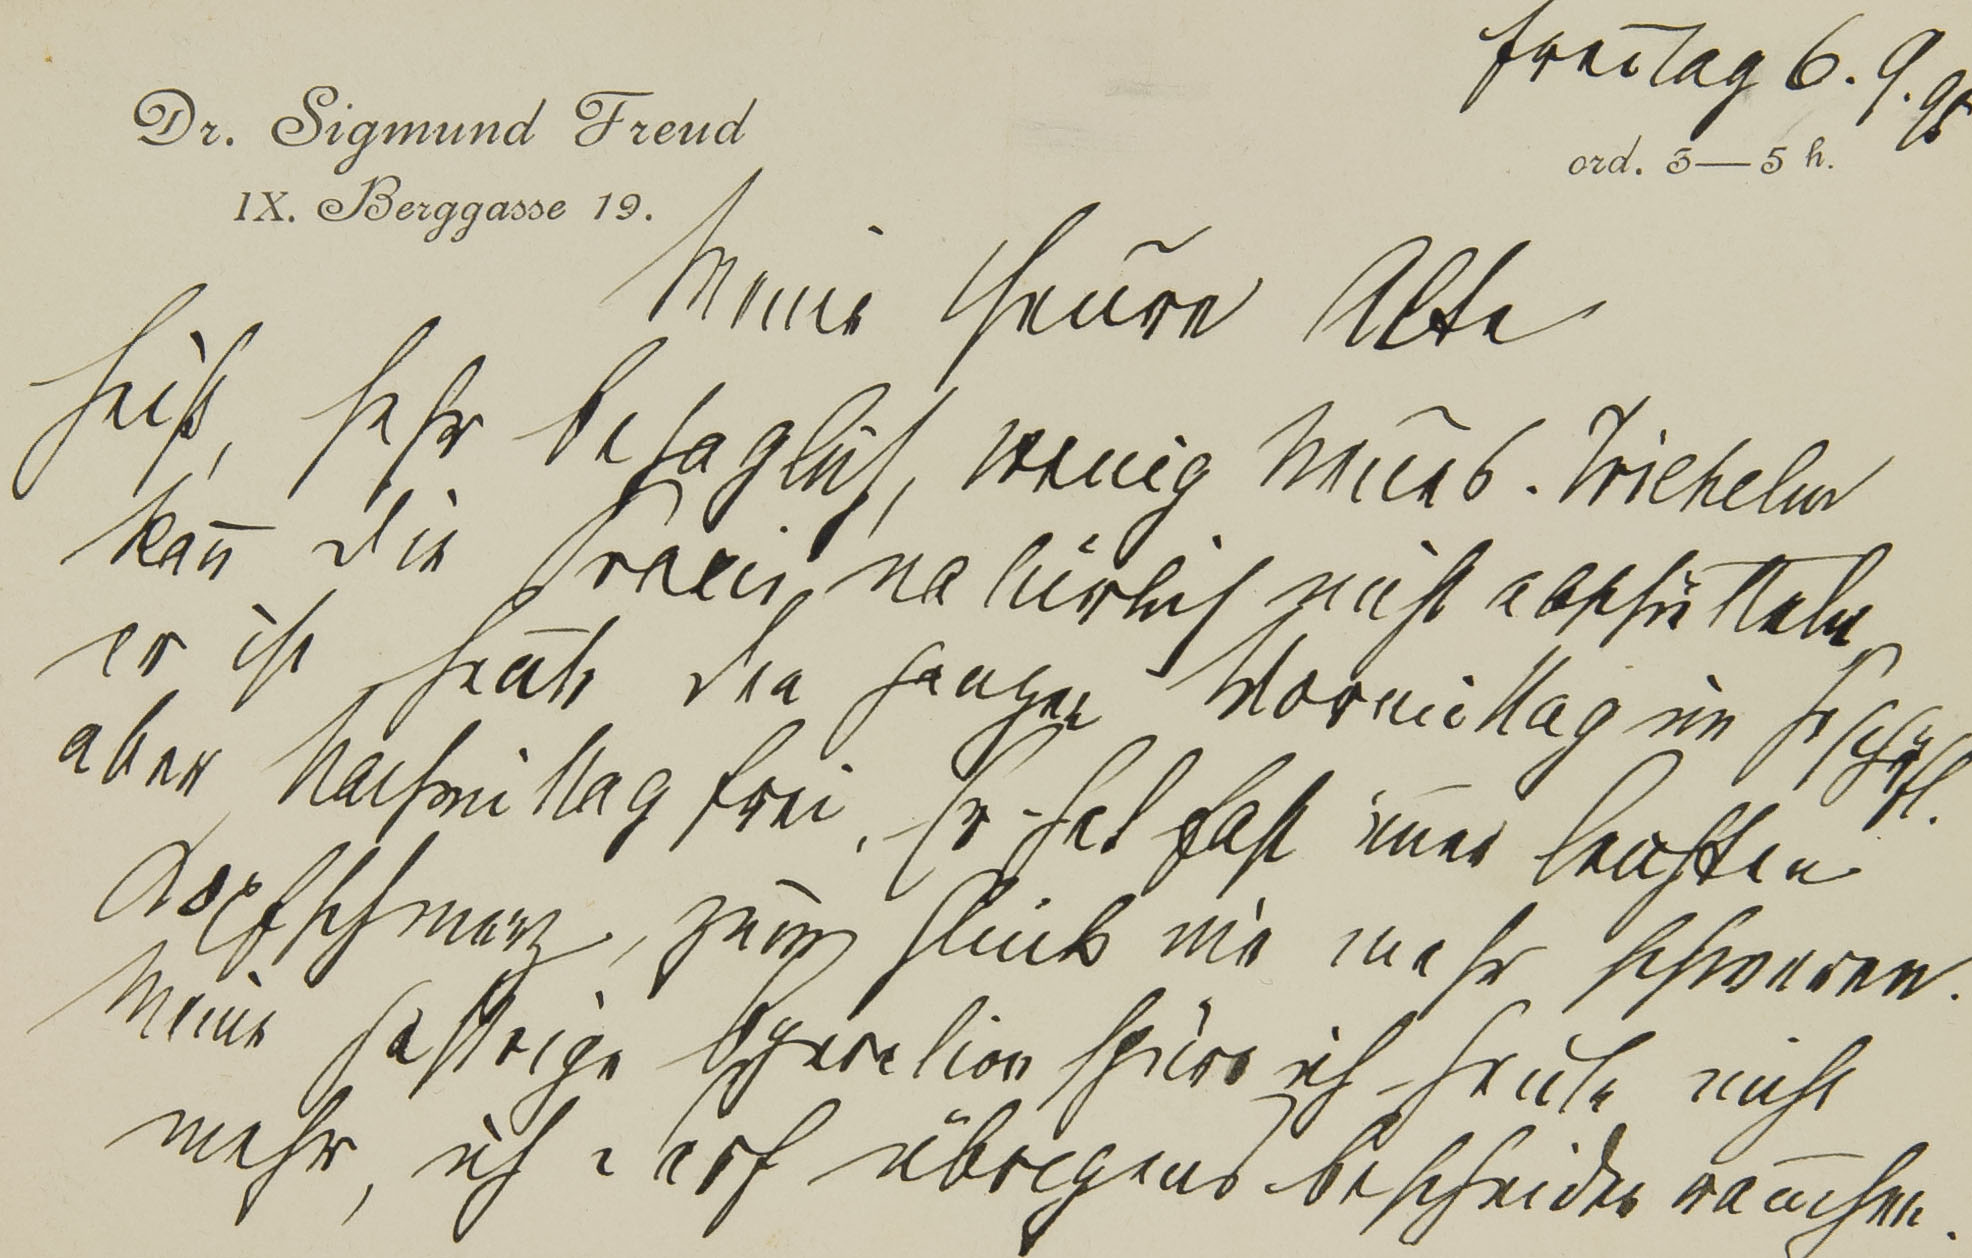 Freitag 6. 9. 95
Dr. Sigmund Freud
IX. Berggasse 19.
ord. 3—5 h.
Meine theure Alte
Heiß, sehr behaglich, wenig Neues. Wilhelm
kan̄ die Praxis natürlich nicht abschütteln,
er ist heute den ganzen Vormittag im Geschäft.
aber Nachmittag frei. Er hat fast im̄er leichten
Kopfschmerz, zum Glück nie mehr schweren.
Meine gestrige Operation spüre ich heute nicht
mehr, ich darf übrigens bescheiden rauchen.